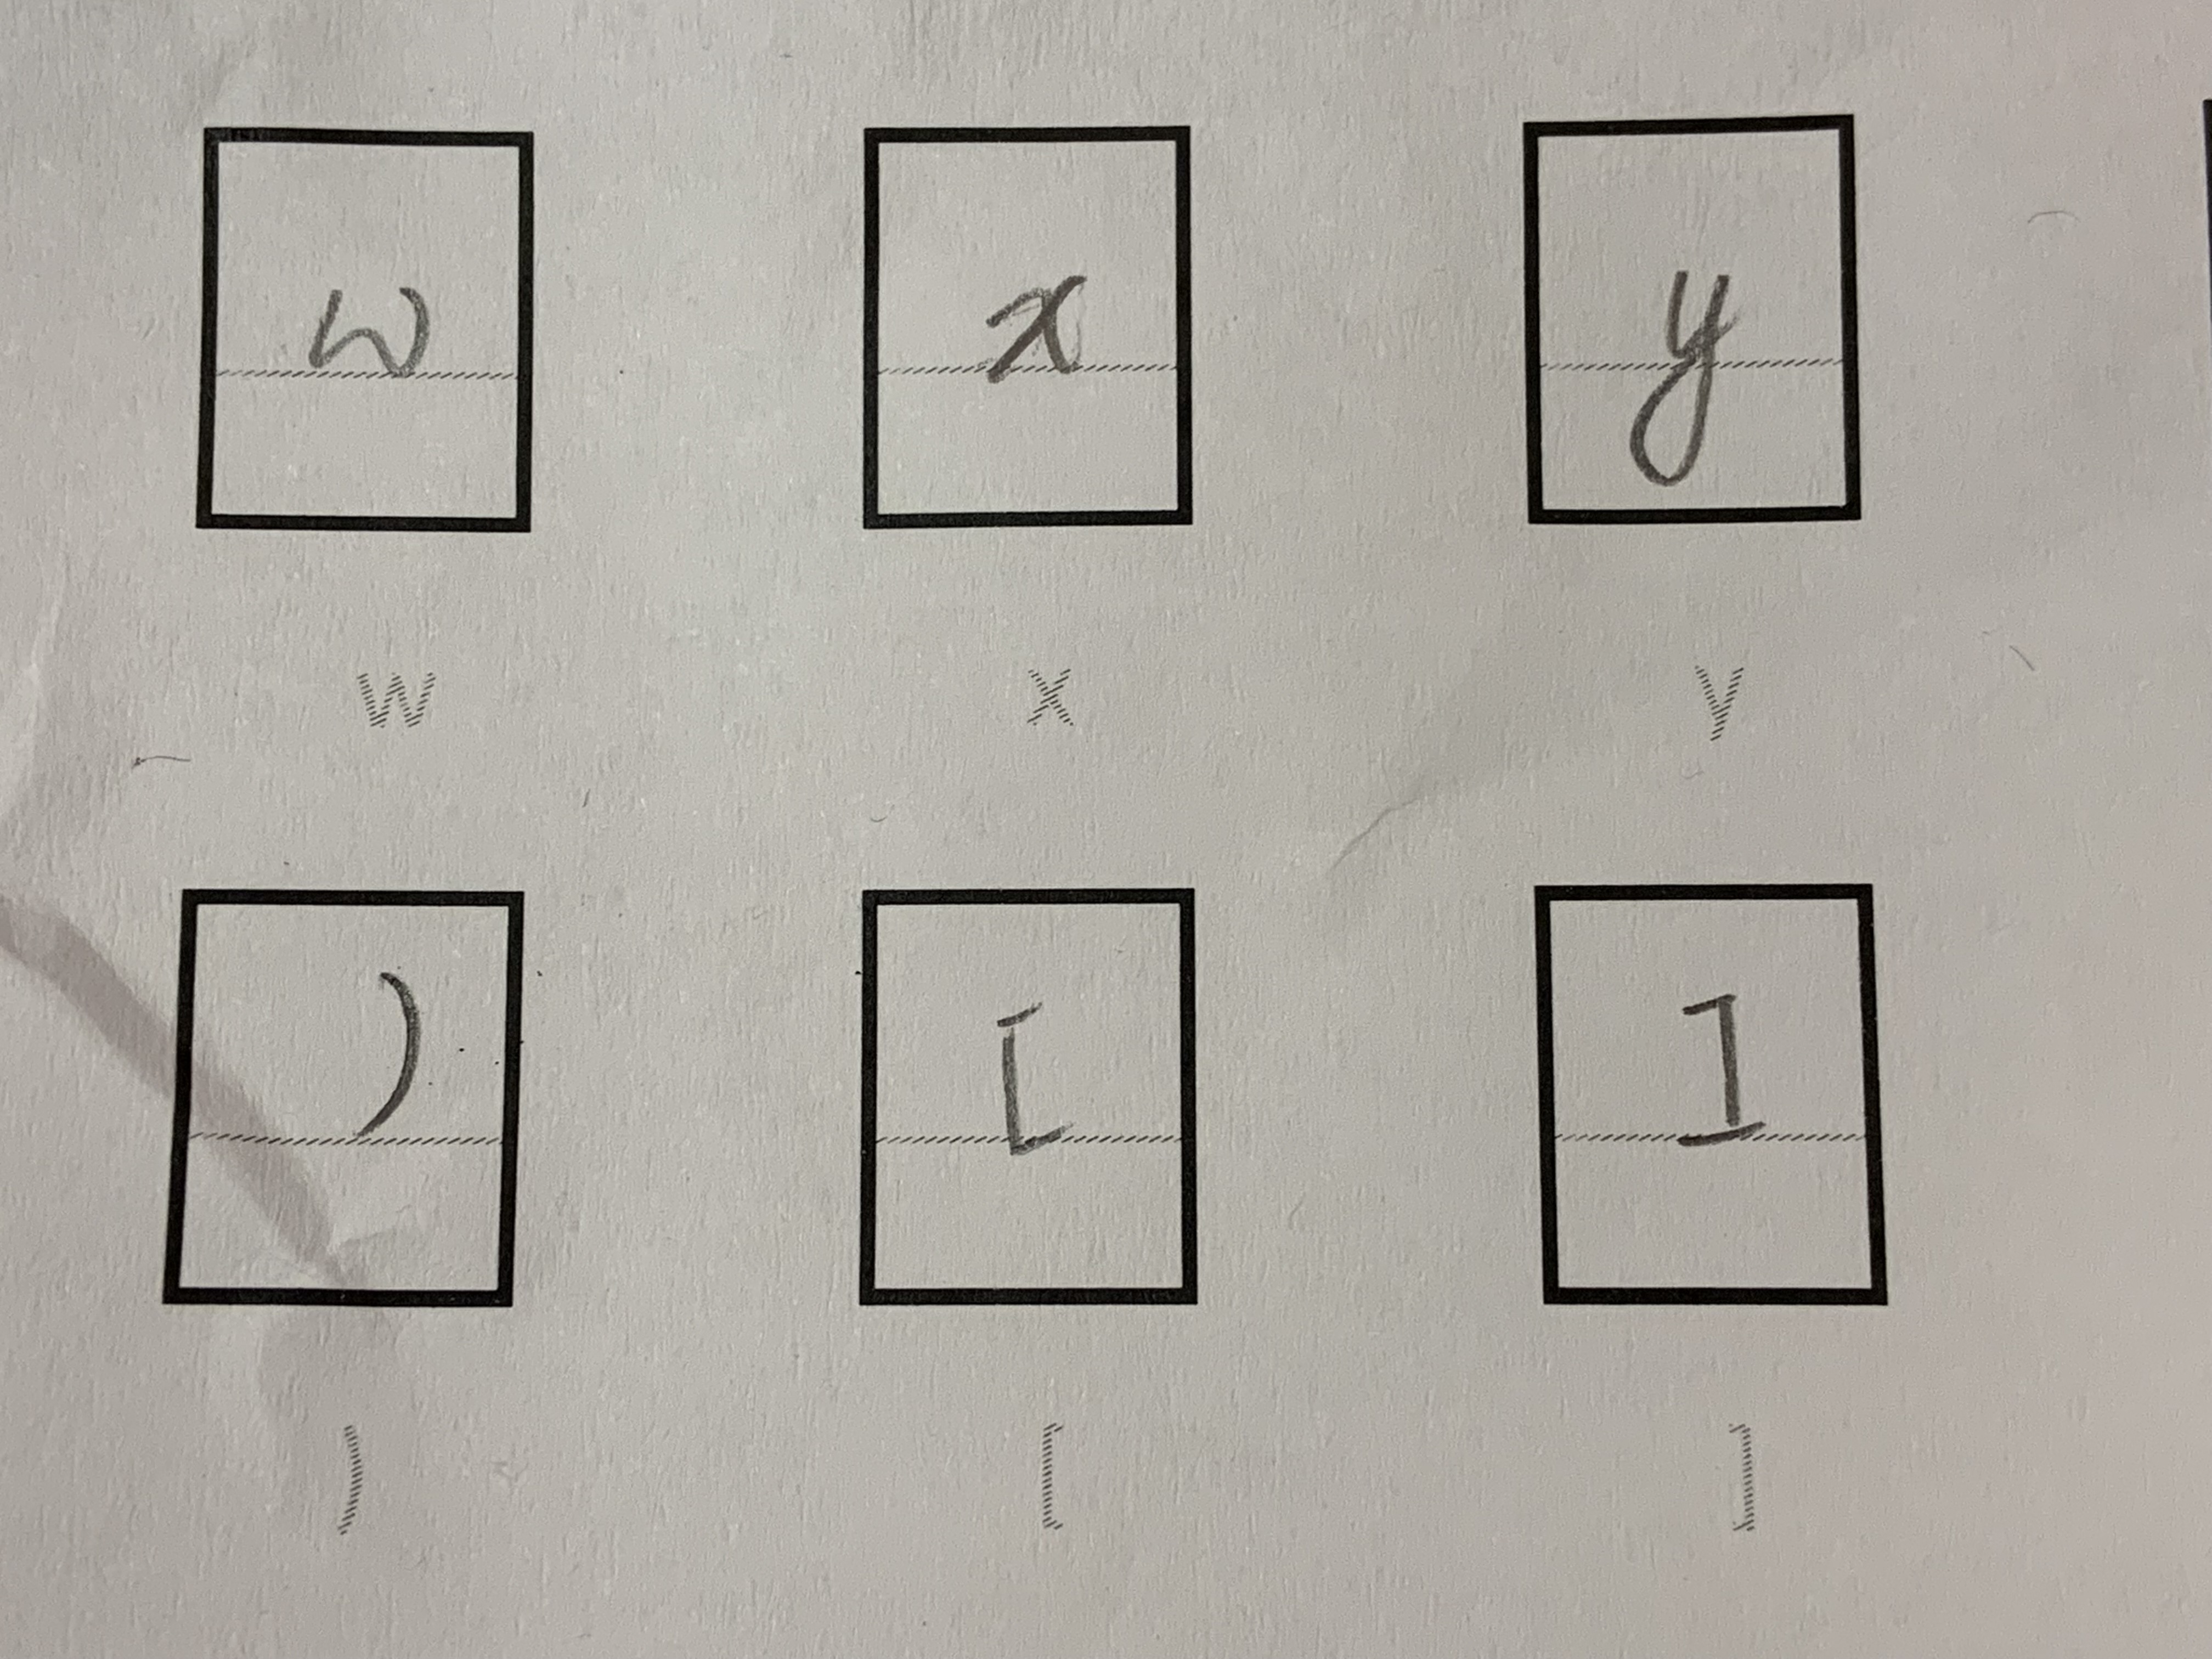 w x y
w x y
) [ ]
) [ ]